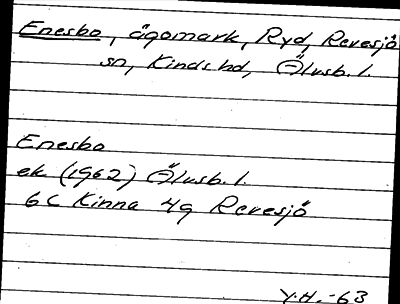 Enesbo, ägomark, Ryd, Revesjö
sn, Kinds hd, Älvsb. l.
Enesbo
ek (1962) Älvsb. l.
6C Kinna 4g Revesjö
Y.H. -63